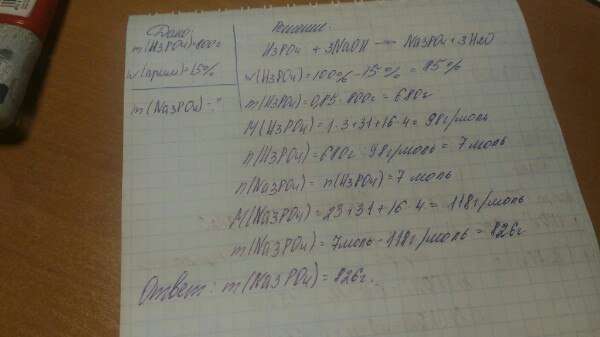 Дано:
m(H3PO4)=800г
w(прим)=15%
m(Na3PO4)=?
Решение
H3PO4 + 3NaOH → Na3PO4+3H2O
w(H3PO4)=100%-15%=85%
m(H3PO4)=0,85·800г=680г
M(H3PO4)=1·3+31+16·4=98г/моль
n(H3PO4)=680г:98г/моль=7моль
n(Na3PO4)=n(H3PO4)=7моль
M(Na3PO4)=23+31+16·4=118г/моль
m(Na3PO4)=7моль·118г/моль=826г
Ответ: m(Na3PO4)=826г.